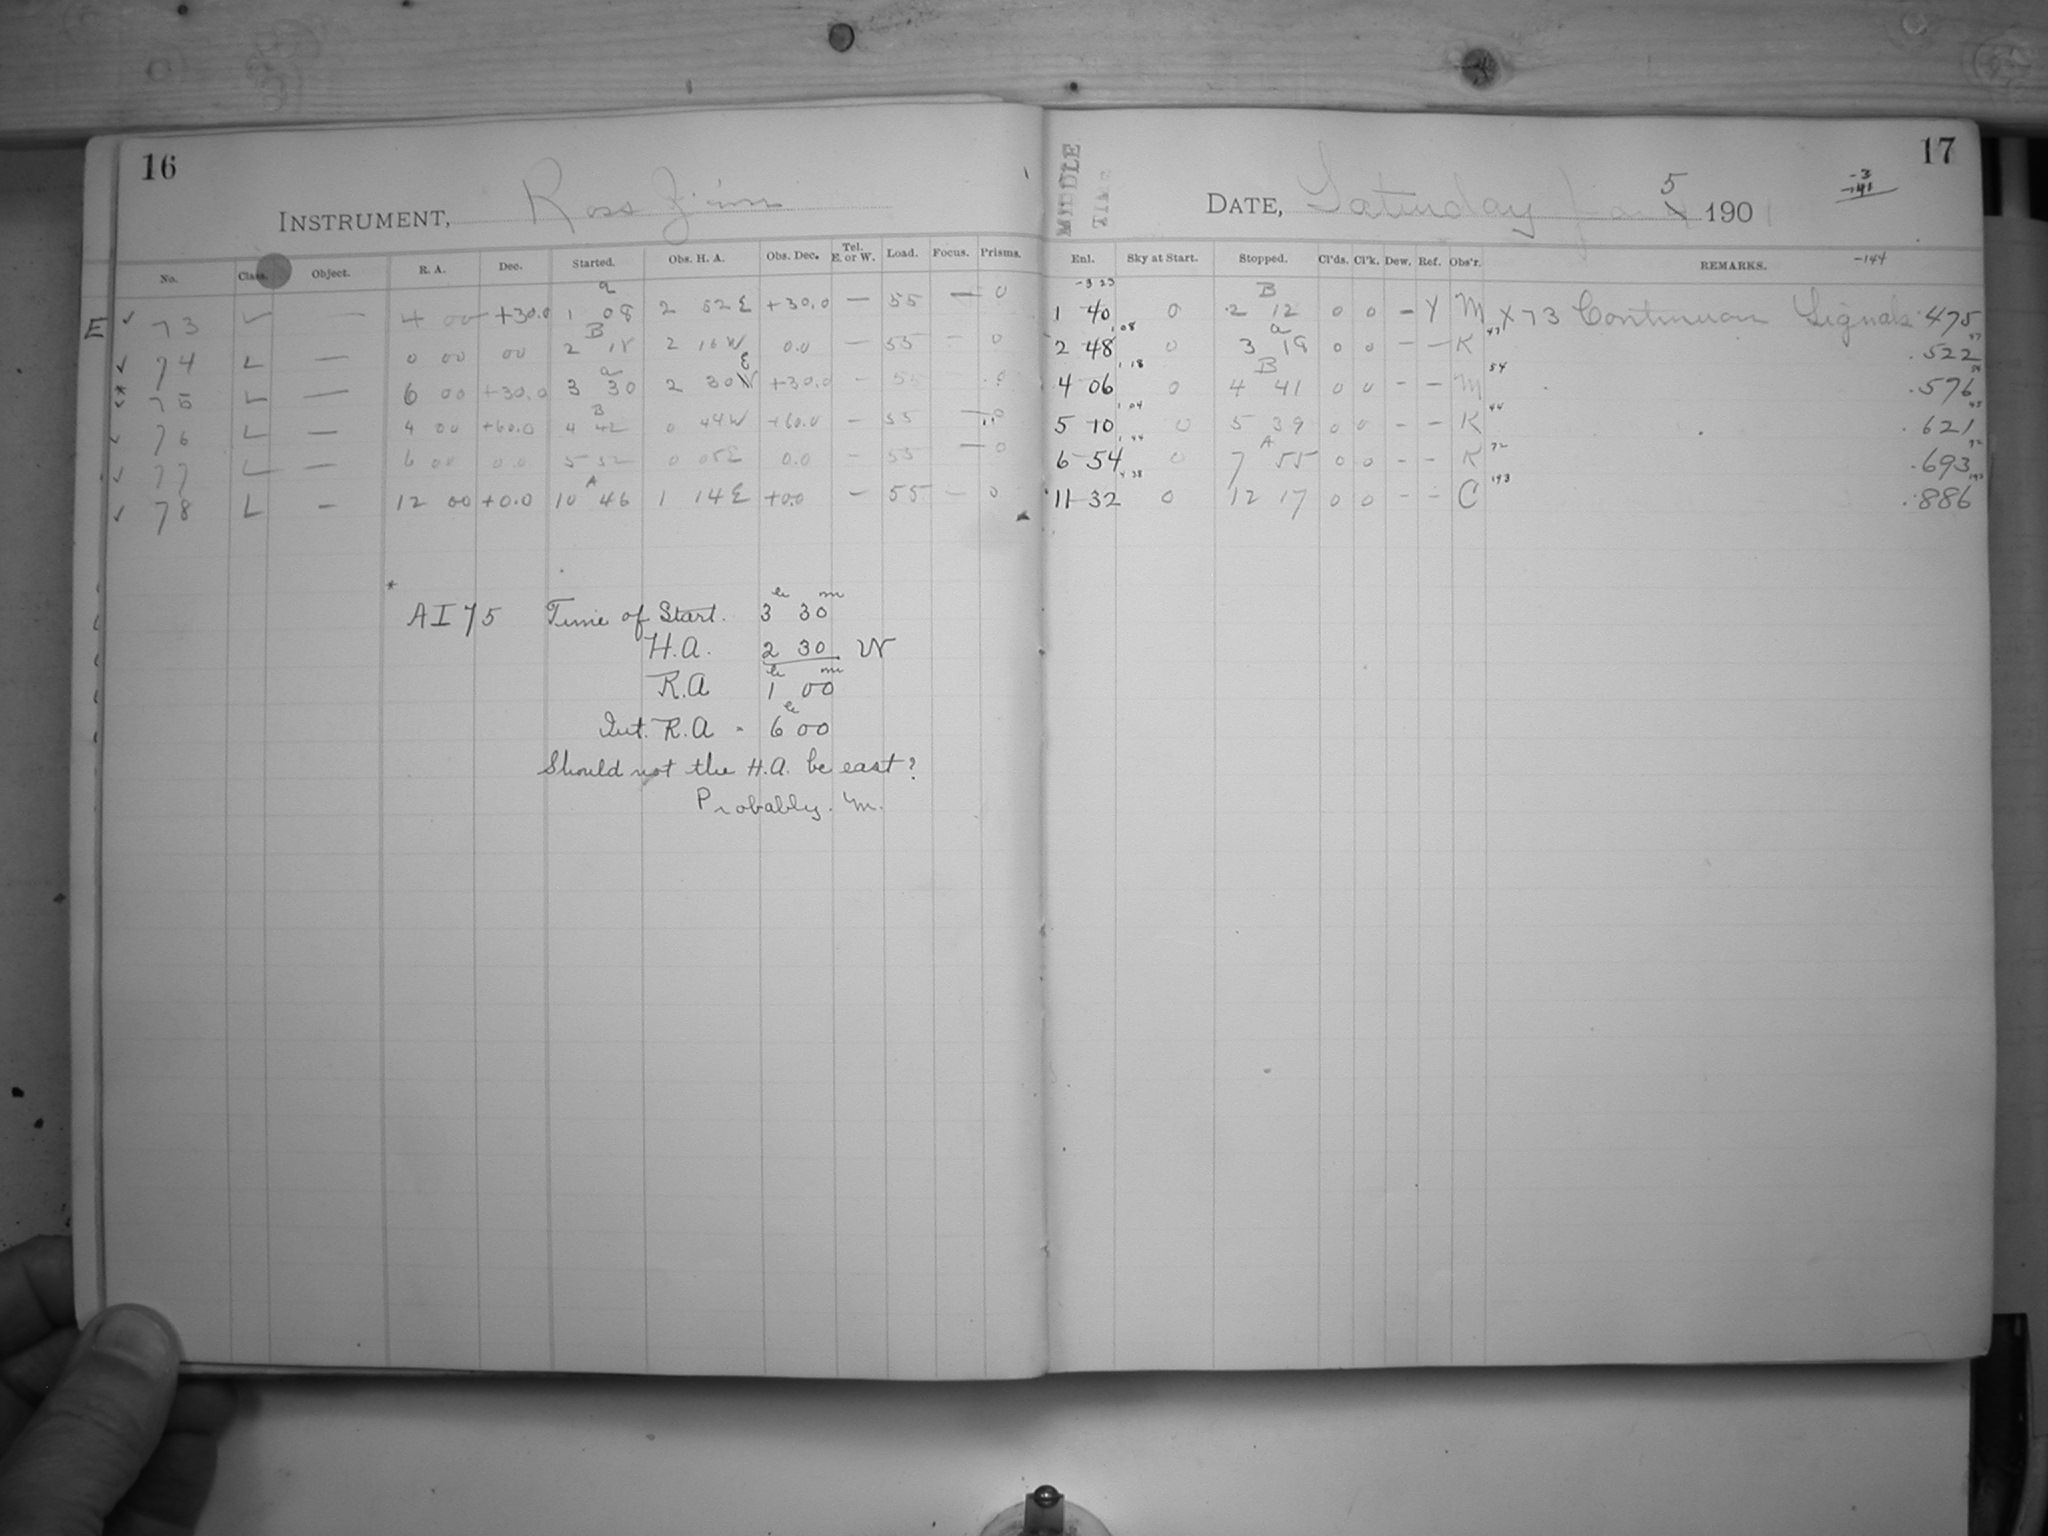 16
INSTRUMENT, Ross
No. Class. Object. R. A. Dec. Started. Obs. H. A. Obs. Dec. Tel. E. or W. Load. Focus. Prisms.
E ✓ 73 L — 4 00 +30.0 a 1 08 2 52 E +30.0 — 55 — 0
✓ 74 L — 0 00 00 B 2 18 2 16 W 0.0 — 55 — 0
* ✓ 75 L — 6 00 +30.0 a 3 30 2 30 E +30.0 — 55 0
✓ 76 L — 4 00 +60.0 B 4 42 0 44 W +60.0 — 55 — 0
✓ 77 L — 6 00 0.0 5 52 0 05 E 0.0 — 55 — 0
✓ 78 L — 12 00 +0.0 A 10 46 1 14 E +0.0 — 55 — 0
*
AI 75 Time of Start. 3h 30m
H.A. 2 30 W
R.A 1h 00m
Int. R.A - 6h 00
Should not the H.A. be east?
Probably. M.
17
MIDDLE TIME
DATE, Saturday Jan 5 1901
-3
-141
-144
Enl. Sky at Start. Stopped. Cl'ds. Cl'k. Dew. Ref. Obs'r. REMARKS.
-3 23
1 40 0 B 2 12 0 0 – Y M X 73 Continuous Signals .475
1 08 47 47
2 48 0 a 3 19 0 0 – – K .522
1 18 54 54
4 06 0 B 4 41 0 0 – – M .576
1 04 44 45
5 10 0 5 39 0 0 – – K .621
1 44 72 72
6 54 0 A 7 55 0 0 – – K .693
4 38 193 193
11 32 0 12 17 0 0 – – C .886